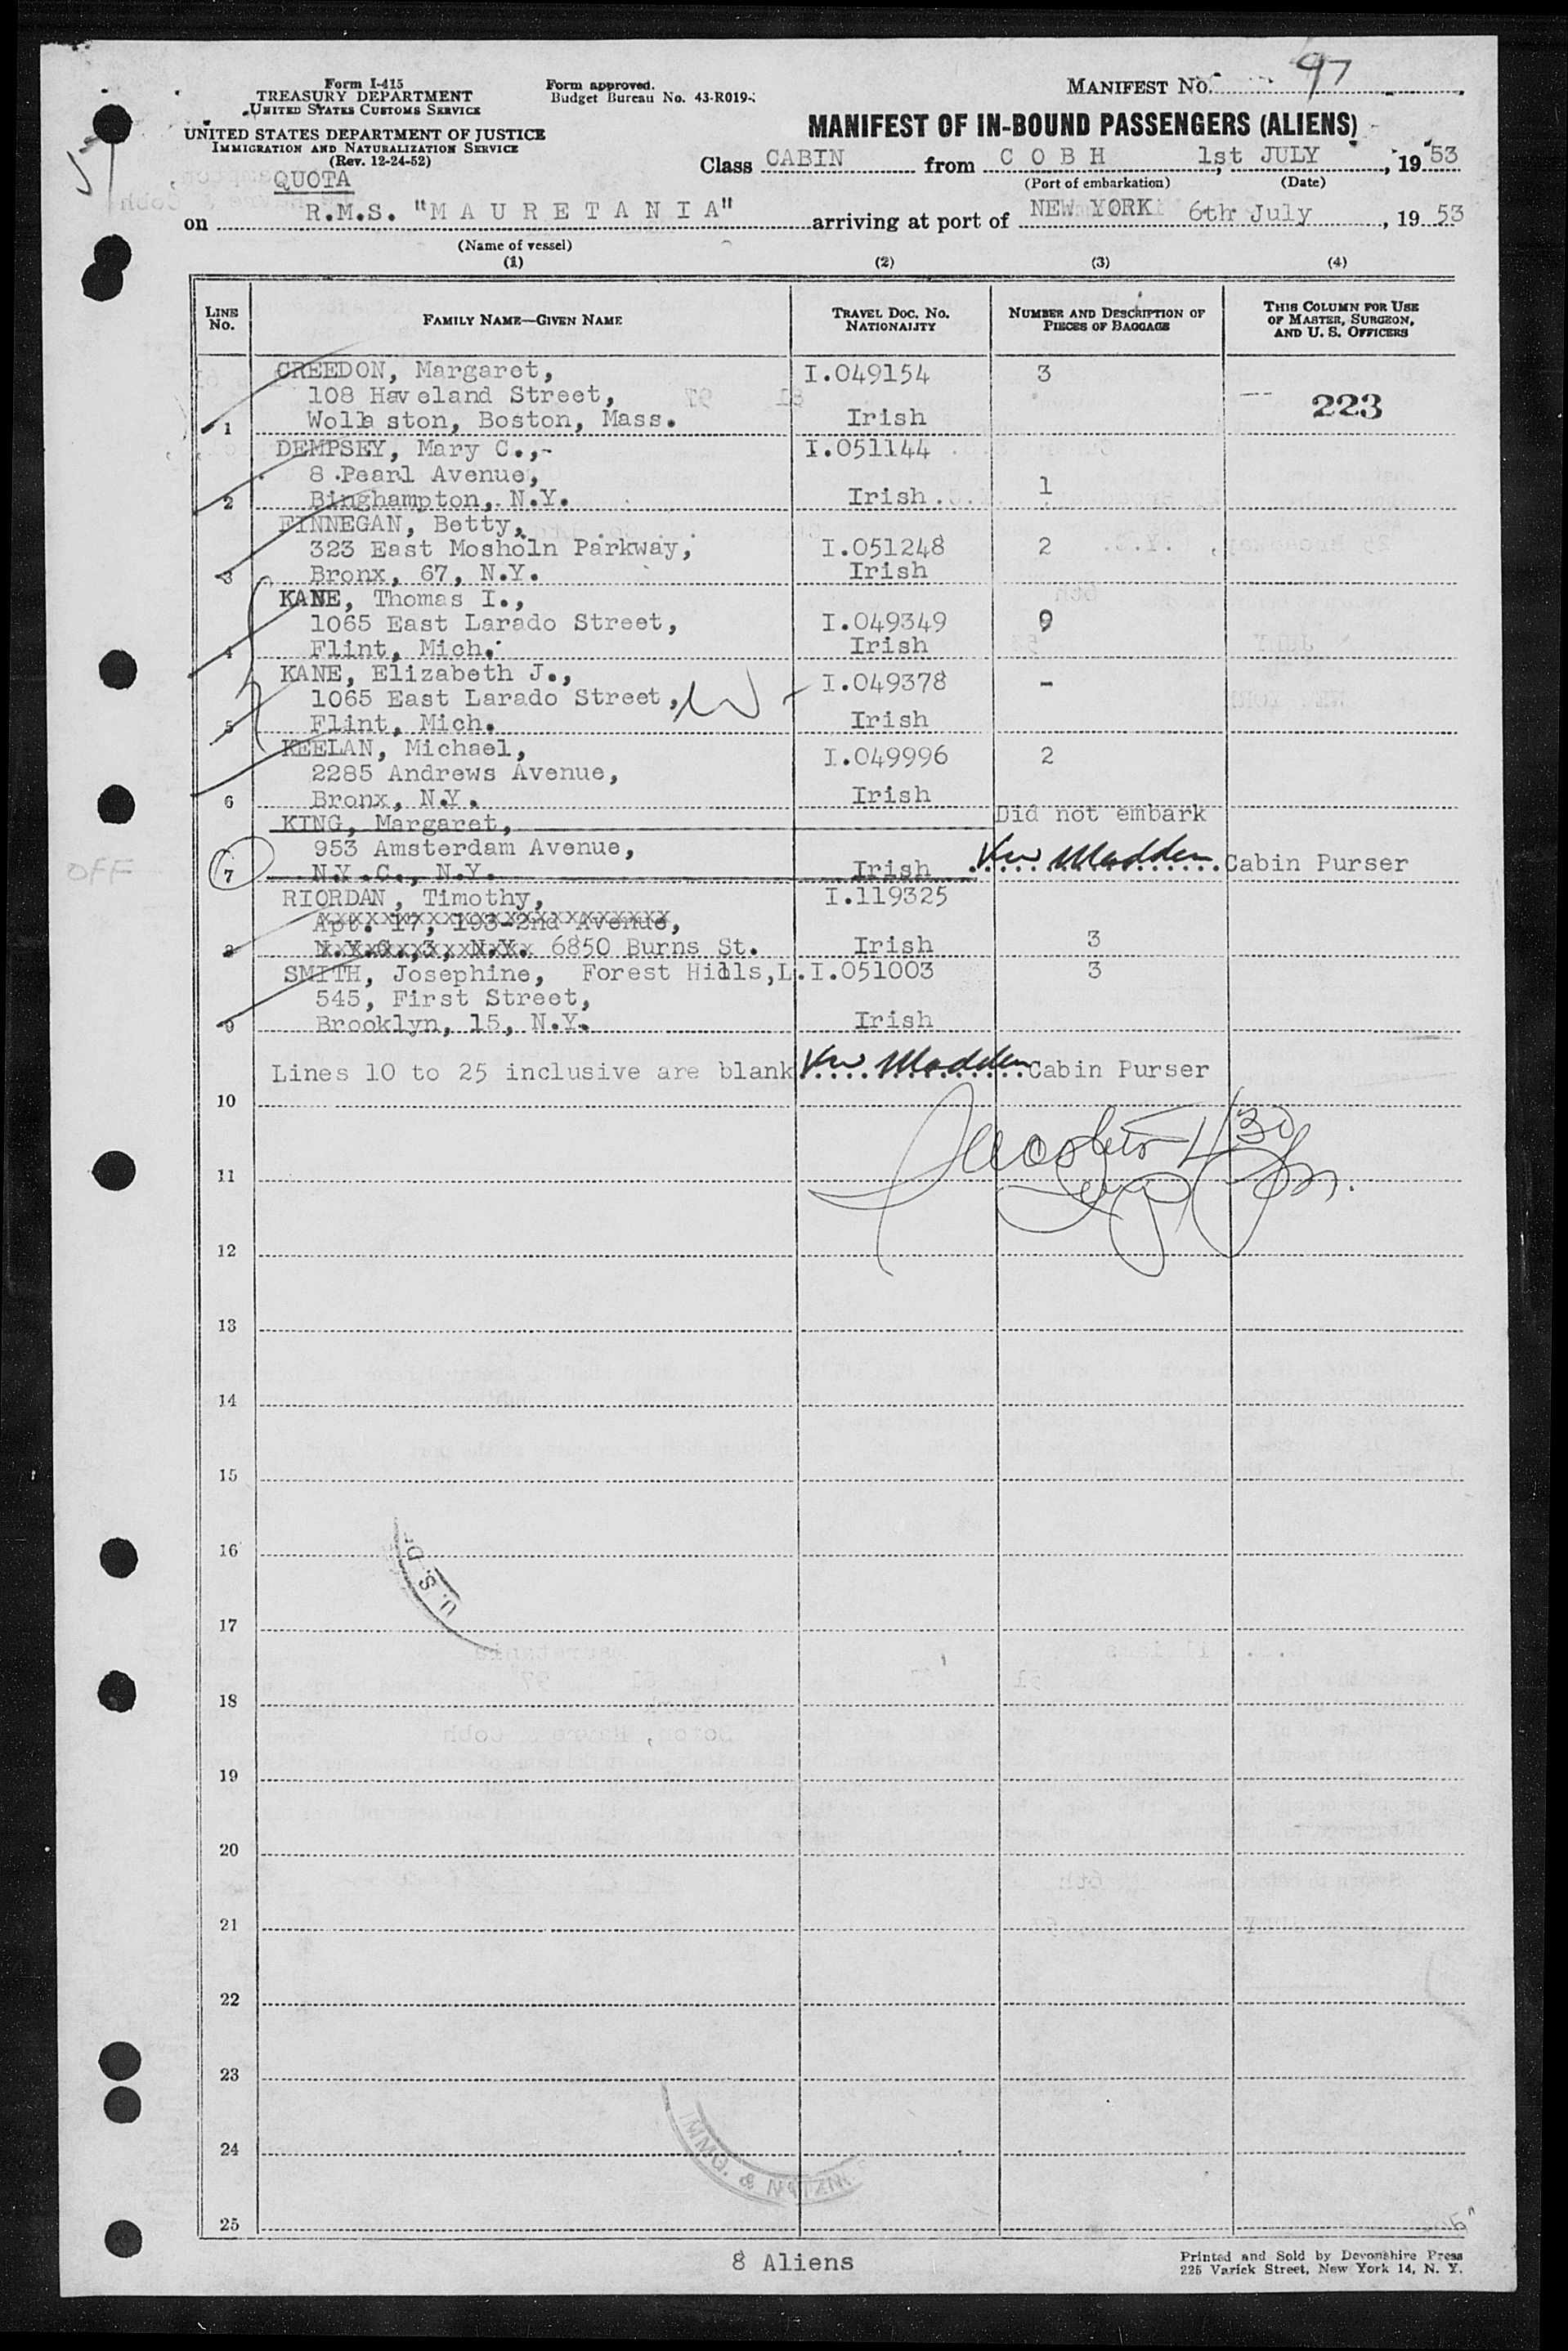 Form I-415
TREASURY DEPARTMENT
UNITED STATES CUSTOMS SERVICE
UNITED STATES DEPARTMENT OF JUSTICE
IMMIGRATION AND NATURALIZATION SERVICE
(Rev. 12-24-52)
QUOTA
Form approved.
Budget Bureau No. 43-R019-
MANIFEST No. 97
MANIFEST OF IN-BOUND PASSENGERS (ALIENS)
Class CABIN from C O B H 1st JULY, 19 53
(Port of embarkation) (Date)
on R.M.S. "M A U R E T A N I A" arriving at port of NEW YORK 6th July, 19 53
(Name of vessel)
(1) (2) (3) (4)
LINE No. FAMILY NAME—GIVEN NAME TRAVEL DOC. NO. NATIONALITY NUMBER AND DESCRIPTION OF PIECES OF BAGGAGE THIS COLUMN FOR USE OF MASTER, SURGEON, AND U. S. OFFICERS
CREEDON, Margaret, I.049154 3
108 Haveland Street, 223
1 Wolla ston, Boston, Mass. Irish
DEMPSEY, Mary C.,- I.051144
8 Pearl Avenue,
2 Binghampton, N.Y. Irish 1
FINNEGAN, Betty,
323 East Mosholn Parkway, I.051248 2
3 Bronx, 67, N.Y. Irish
KANE, Thomas I.,
1065 East Larado Street, I.049349 9
4 Flint, Mich. Irish
KANE, Elizabeth J., I.049378 -
1065 East Larado Street, W
5 Flint, Mich. Irish
KEELAN, Michael, I.049996 2
2285 Andrews Avenue,
6 Bronx, N.Y. Irish
KING, Margaret, Did not embark
953 Amsterdam Avenue,
OFF 7 N.Y.C., N.Y. Irish Madden Cabin Purser
RIORDAN, Timothy, I.119325
Apt. 17, 193-2nd Avenue,
8 N.Y.C., 3, N.Y. 6850 Burns St. Irish 3
SMITH, Josephine, Forest Hills, L.I.051003 3
545, First Street,
9 Brooklyn, 15, N.Y. Irish
Lines 10 to 25 inclusive are blank Madden Cabin Purser
10
11
12
13
14
15
16
U. S. D
17
18
19
20
21
22
23
24
IMMG. & NATZN.
25
8 Aliens
Printed and Sold by Devonshire Press
225 Varick Street, New York 14, N. Y.